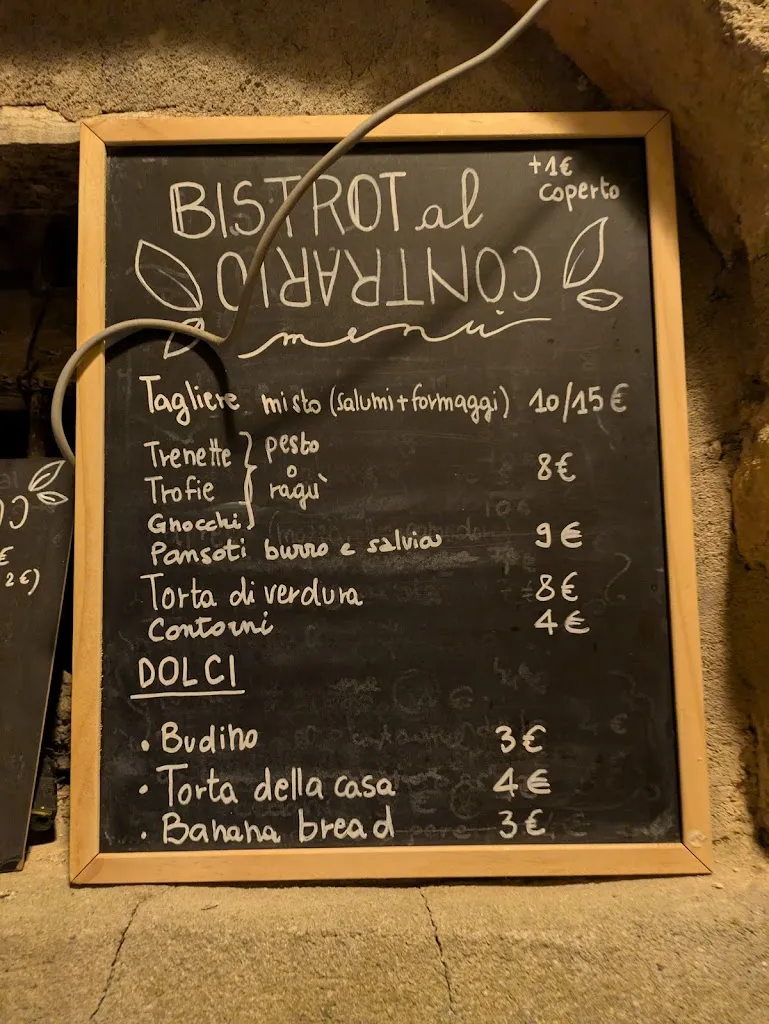 +1€
coperto
BISTROT al
CONTRARIO
menù
Tagliere misto (salumi+formaggi) 10/15€
Trenette } pesto
Trofie } o ragù 8€
Gnocchi }
Pansoti burro e salvia 9€
Torta di verdura 8€
Contorni 4€
DOLCI
• Budino 3€
• Torta della casa 4€
• Banana bread 3€
€
2€)